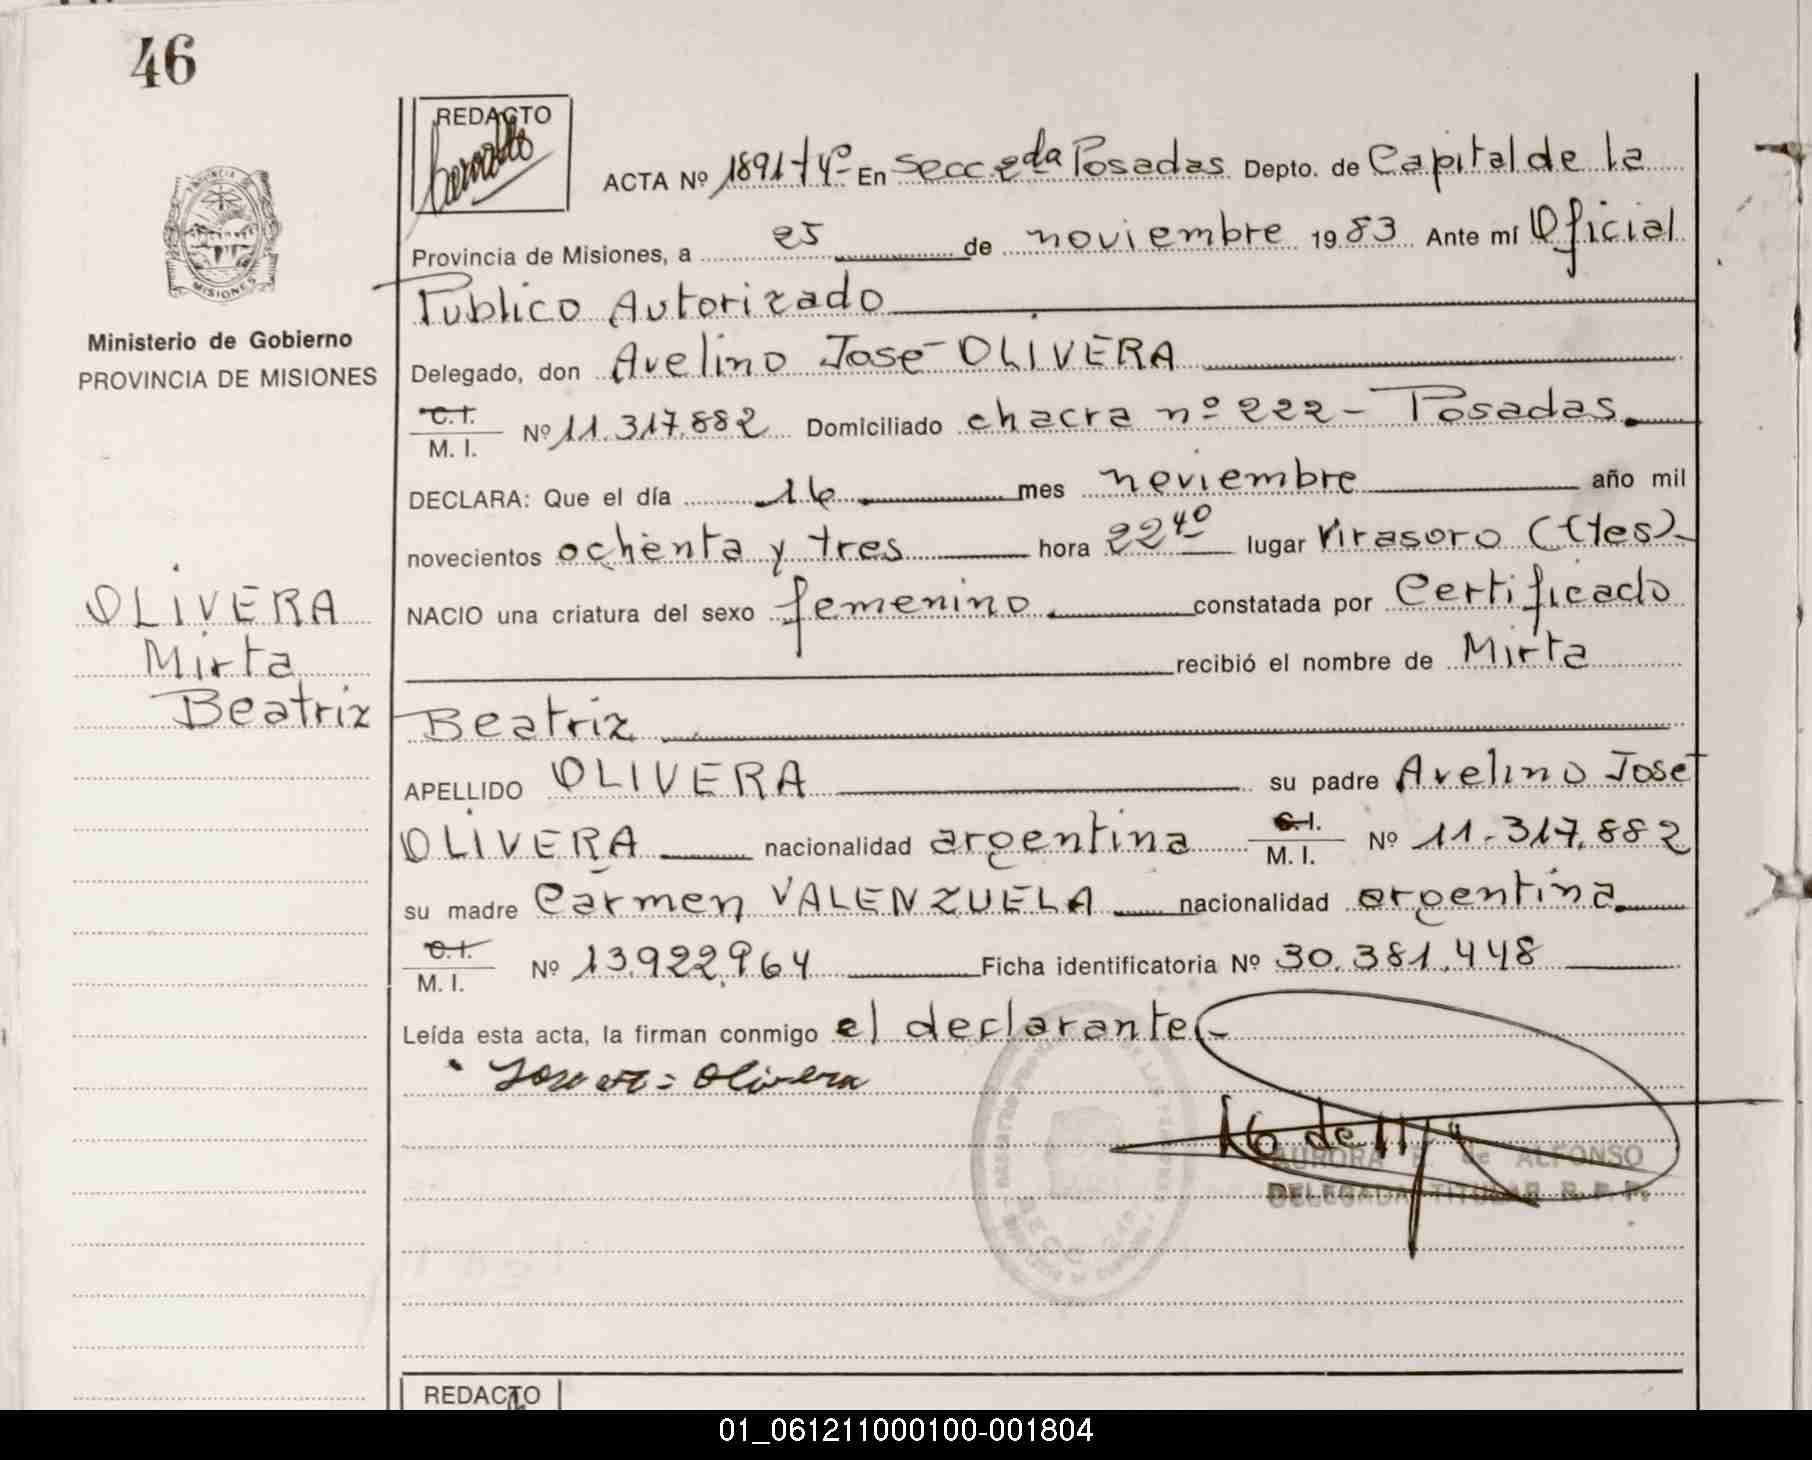 46
REDACTO
ACTA Nº 1891 tº 4º En Secc 2da Posadas Depto. de Capital de la
Provincia de Misiones, a 25 de noviembre 1983 Ante mí Oficial
Publico Autorizado
Delegado, don Avelino José OLIVERA
C.I.
M. I. Nº 11.317.882 Domiciliado chacra nº 222 - Posadas.
DECLARA: Que el día 16 mes noviembre año mil
novecientos ochenta y tres hora 22 40 lugar Virasoro (Ctes)
NACIO una criatura del sexo femenino constatada por Certificado
recibió el nombre de Mirta
Beatriz
APELLIDO OLIVERA su padre Avelino José
OLIVERA nacionalidad argentina C.I. M. I. Nº 11.317.882
su madre Carmen VALENZUELA nacionalidad argentina
C.I.
M. I. Nº 13.922.964 Ficha identificatoria Nº 30.381.448
Leída esta acta, la firman conmigo el declarante
Olivera
16 de 11/
AURORA E. de ALFONSO
DELEGADA TITULAR R. P. P.
PROVINCIA DE
MISIONES
Ministerio de Gobierno
PROVINCIA DE MISIONES
OLIVERA
Mirta
Beatriz
REDACTO
01_061211000100-001804